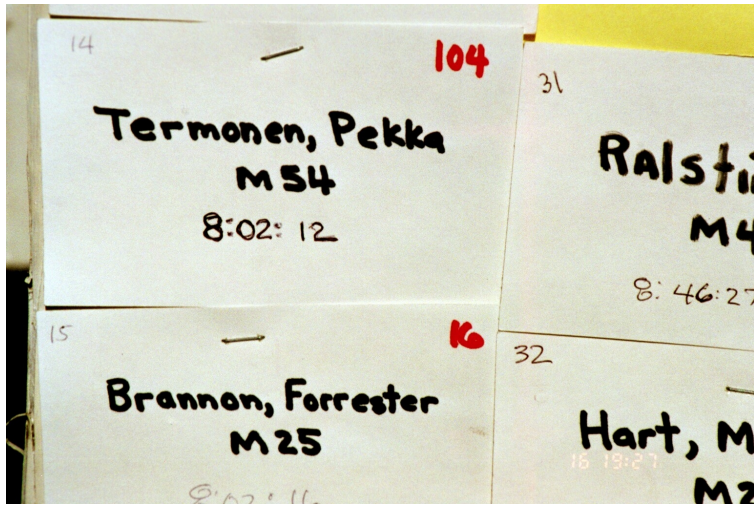 14
104
Termonen, Pekka
M 54
8:02:12
15
16
Brannon, Forrester
M 25
8:02:16
31
8:46:27
32
Hart, M
16 19:27